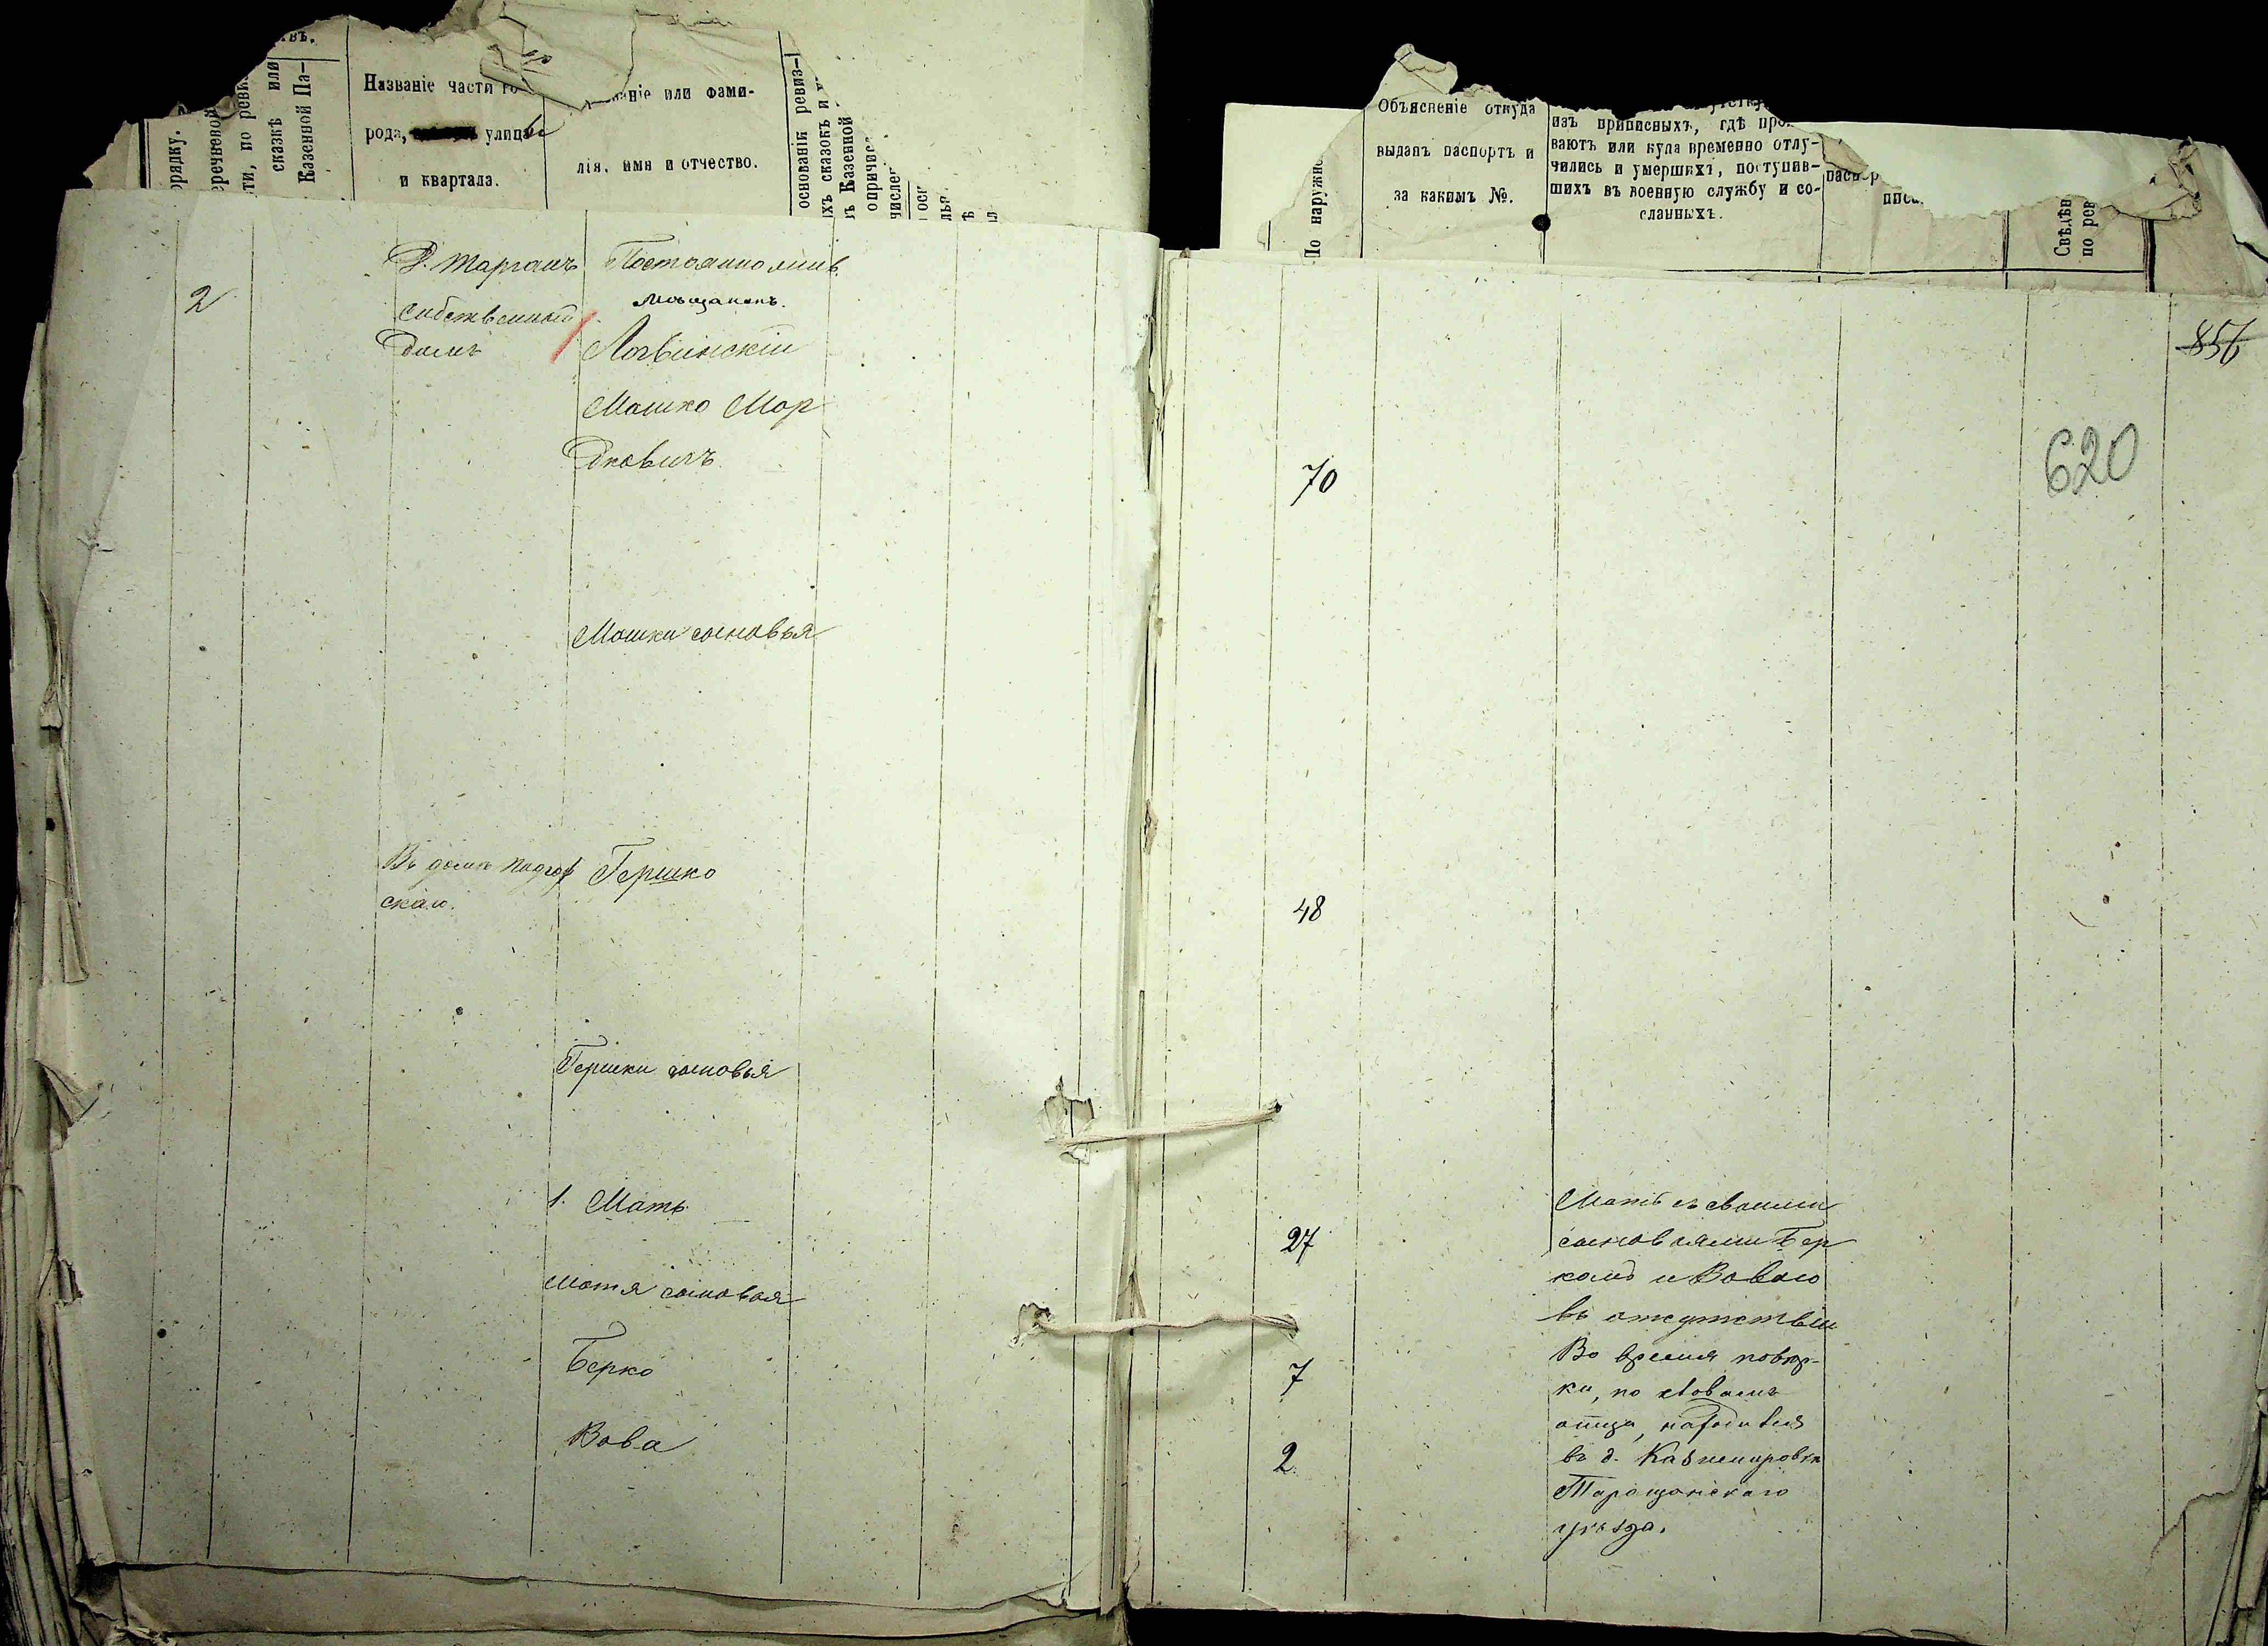 порядку.
сказкѣ или
Казенной Па-
Названіе части го
рода, улицы
и квартала.
или фами-
лія, имя и отчество.
основанія ревиз-
хъ сказокъ и
Казенной
Объясненіе откуда
выданъ паспортъ и
за какимъ №.
изъ приписныхъ, гдѣ
ваютъ или куда временно отлу-
чились и умершихъ, поступив-
шихъ въ военную службу и со-
сланныхъ.
По наружно
по рев
856
620
2
собственный
домъ
Мѣщанинъ.
Логвинскій
Мошко Мор
дковичъ
70
Мошки сыновья
Въ домѣ
скаго.
Гершко
48
Гершки сыновья
1. Мать
27
Мотя сыновья
Берко
7
Вова
2
Мать съ своими
сыновьями Бер
комъ и Вовою
въ отсутствіи
Во время повѣр-
ки, по словамъ
отца, находится
въ д. Казимировкѣ
Таращанскаго
уѣзда.